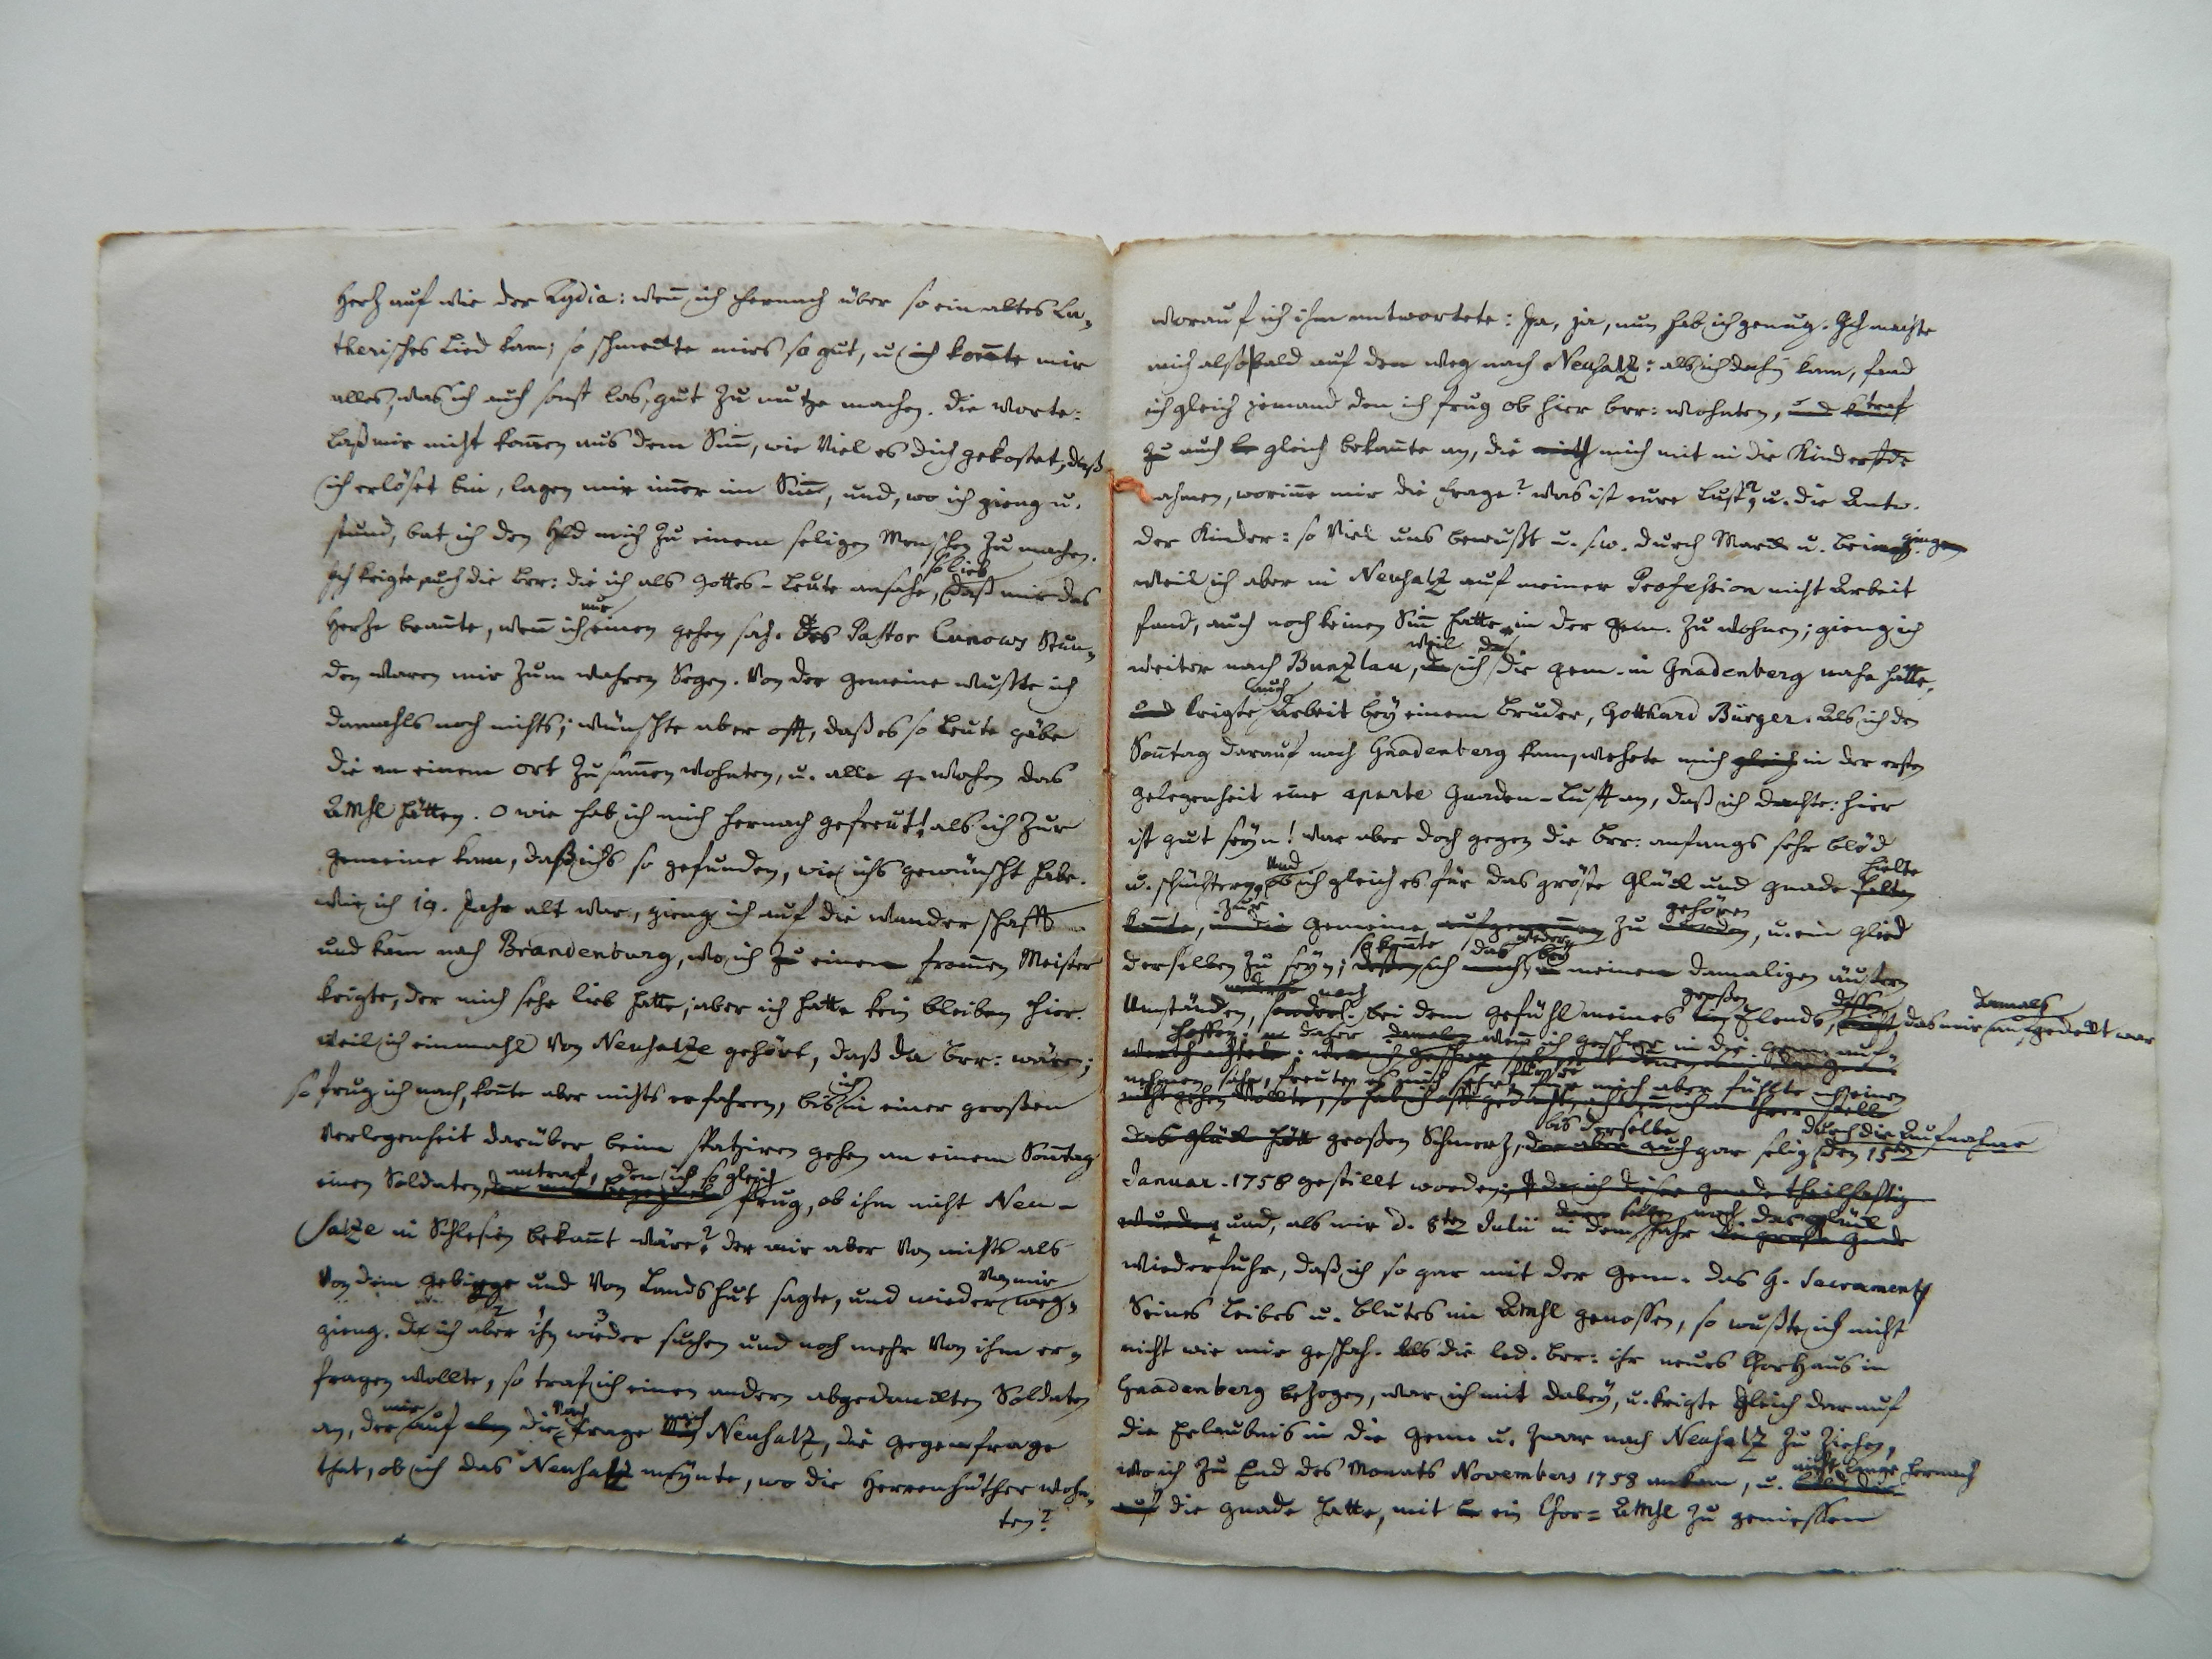 Hertz auf wie der Lydia: wen̄ ich hernach über so ein altes Lu-
therisches Lied kam; so schmeckte mirs so gut, u. ich kon̄te mir
alles, was ich auch sonst las, gut zu nutze machen. Die Worte:
Laß mir nicht kom̄en aus dem Sin̄, wie viel es dich gekostet, daß
ich erlöset bin, lagen mir im̄er im Sin̄, und, wo ich gieng u.
stund, bat ich den Hld mich zu einem seligen Menschen zu machen.
Ich krigte auch die Brr: die ich als Gottes-Leute ansahe, so lieb daß mir das
Hertze bran̄te, wen̄ ich nur einen gehen sah. Des Pastor Cunows Stun-
den waren mir zum wahren Segen. Von der Gemeine wußte ich
damahls noch nichts; wünschte aber offt, daß es so Leute gäbe
die an einem Ort zusam̄en wohnten, u. alle 4. Wochen das
AMhl hätten. O wie hab ich mich hernach gefreut! als ich zur
Gemeine kam, daß ichs so gefunden, wie ichs gewünscht habe.
Wie ich 19. Jahr alt war, gieng ich auf die Wanderschafft
und kam nach Brandenburg, wo ich zu einem from̄en Meister
krigte, der mich sehr lieb hatte; aber ich hatte kein bleiben hier.
Weil ich einmahl von Neusaltze gehört, daß da Brr: wären;
so frug ich nach, kon̄te aber nichts erfahren, bis ich in einer großen
Verlegenheit darüber beim spatziren gehen an einem Son̄tag
einen Soldaten antraf, den ich so gleich frug, ob ihm nicht Neu-
saltze in Schlesien bekan̄t wäre? der mir aber von nichts als
von dem Gebirge und von Landshut sagte, und wieder von mir weg-
gieng. Da ich aber ihn wieder suchen und noch mehr von ihm er-
fragen wollte, so traf ich einen andern abgedanckten Soldaten
an, der mir auf die Frage nach Neusaltz, die Gegenfrage
that, ob ich das Neusaltz meynte, wo die Herrenhuther wohn-
ten?
worauf ich ihm antwortete: Ja, ja, nun hab ich genug. Ich machte
mich alsobald auf den Weg nach Neusaltz: als ich dahin kam, fand
ich gleich jemand den ich frug ob hier Brr: wohnten, und traf
zu auch gleich bekan̄te an, die mich mit in die Kinderstde
nahmen, worin̄e mir die Frage? was ist eure Lust? u. die Antw.
der Kinder: so viel uns bewußt u. s.w. durch Marck u. Bein gingen
weil ich aber in Neusaltz auf meiner Profession nicht Arbeit
fand, auch noch keinen Sin̄ hatte in der Gem. zu wohnen; gieng ich
weiter nach Bunzlau, weil ich da die Gem. in Gnadenberg nahe hatte,
und krigte auch Arbeit bey einem Bruder, Gotthard Bürger. Als ich den
Son̄tag darauf nach Gnadenberg kam, wehete mich gleich in der ersten
Gelegenheit eine aparte Gnaden-Lufft an, daß ich dachte: hier
ist gut seyn! war aber doch gegen die Brr: anfangs sehr blöd
u. schüchtern. Und ob ich gleich es für das gröste Glück und Gnade hielte
zur Gemeine zu gehören, u. ein Glied
derselben zu seyn; so kon̄te ich das weder bey meinen damaligen äusern
Umständen, noch bei dem Gefühl meines großen Elends, das mir damals aufgedeckt war
hoffen; daher wen̄ ich Geschwr in die Gem. auf-
nehmen sahe, freute es mich sehr, für mich aber fühlte ich einen
großen Schmertz, bis derselbe gar selig durch die Aufnahme den 15ten
Januar. 1758 gestillt worden; da ich dieser Gnade theilhaftig
wurde; und, als mir d. 8ten Julii in demselben Jahr noch das Glück
wiederfuhr, daß ich so gar mit der Gem. das H. Sacrament
Seines Leibes u. Blutes im AMhl genossen, so wußte ich nicht
nicht wie mir geschah. Als die led. Brr: ihr neues Chorhaus in
Gnadenberg bezogen, war ich mit dabey, u. krigte gleich darauf
die Erlaubnis in die Gem u. zwar nach Neusaltz zu ziehen,
wo ich zu End des Monats Novembers 1758 ankam, u. nicht lange hernach
auf die Gnade hatte, mit ein Chor-AMhl zu geniessen